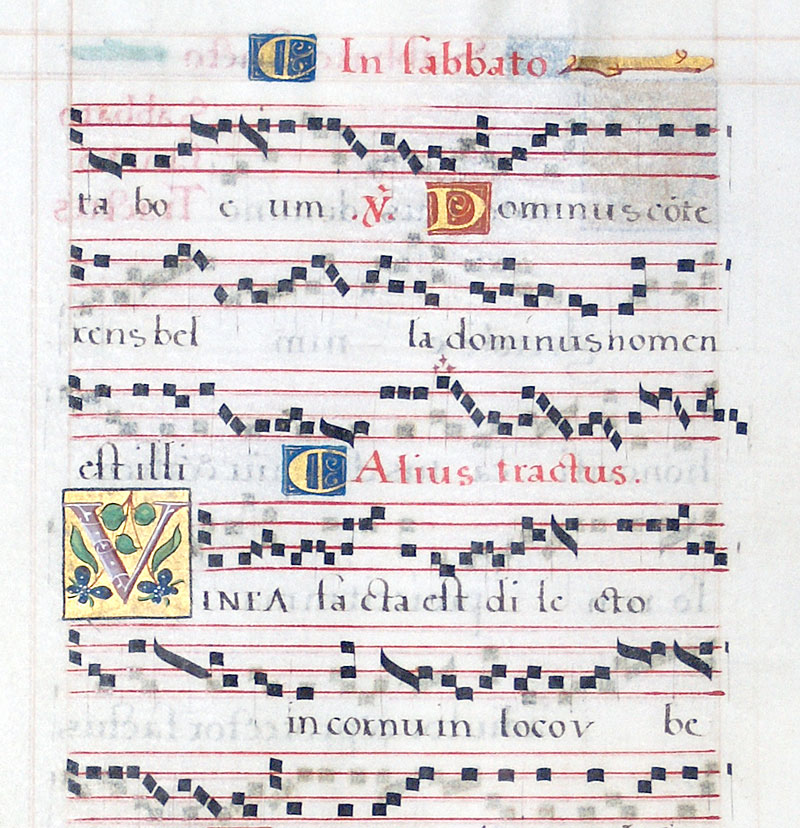 In sabbato
ra bo e um. ℣ Dominus cōte
rens bel la dominus nomen
est illi Alius tractus.
VINEA facta est di le cto
in cornu in loco v be